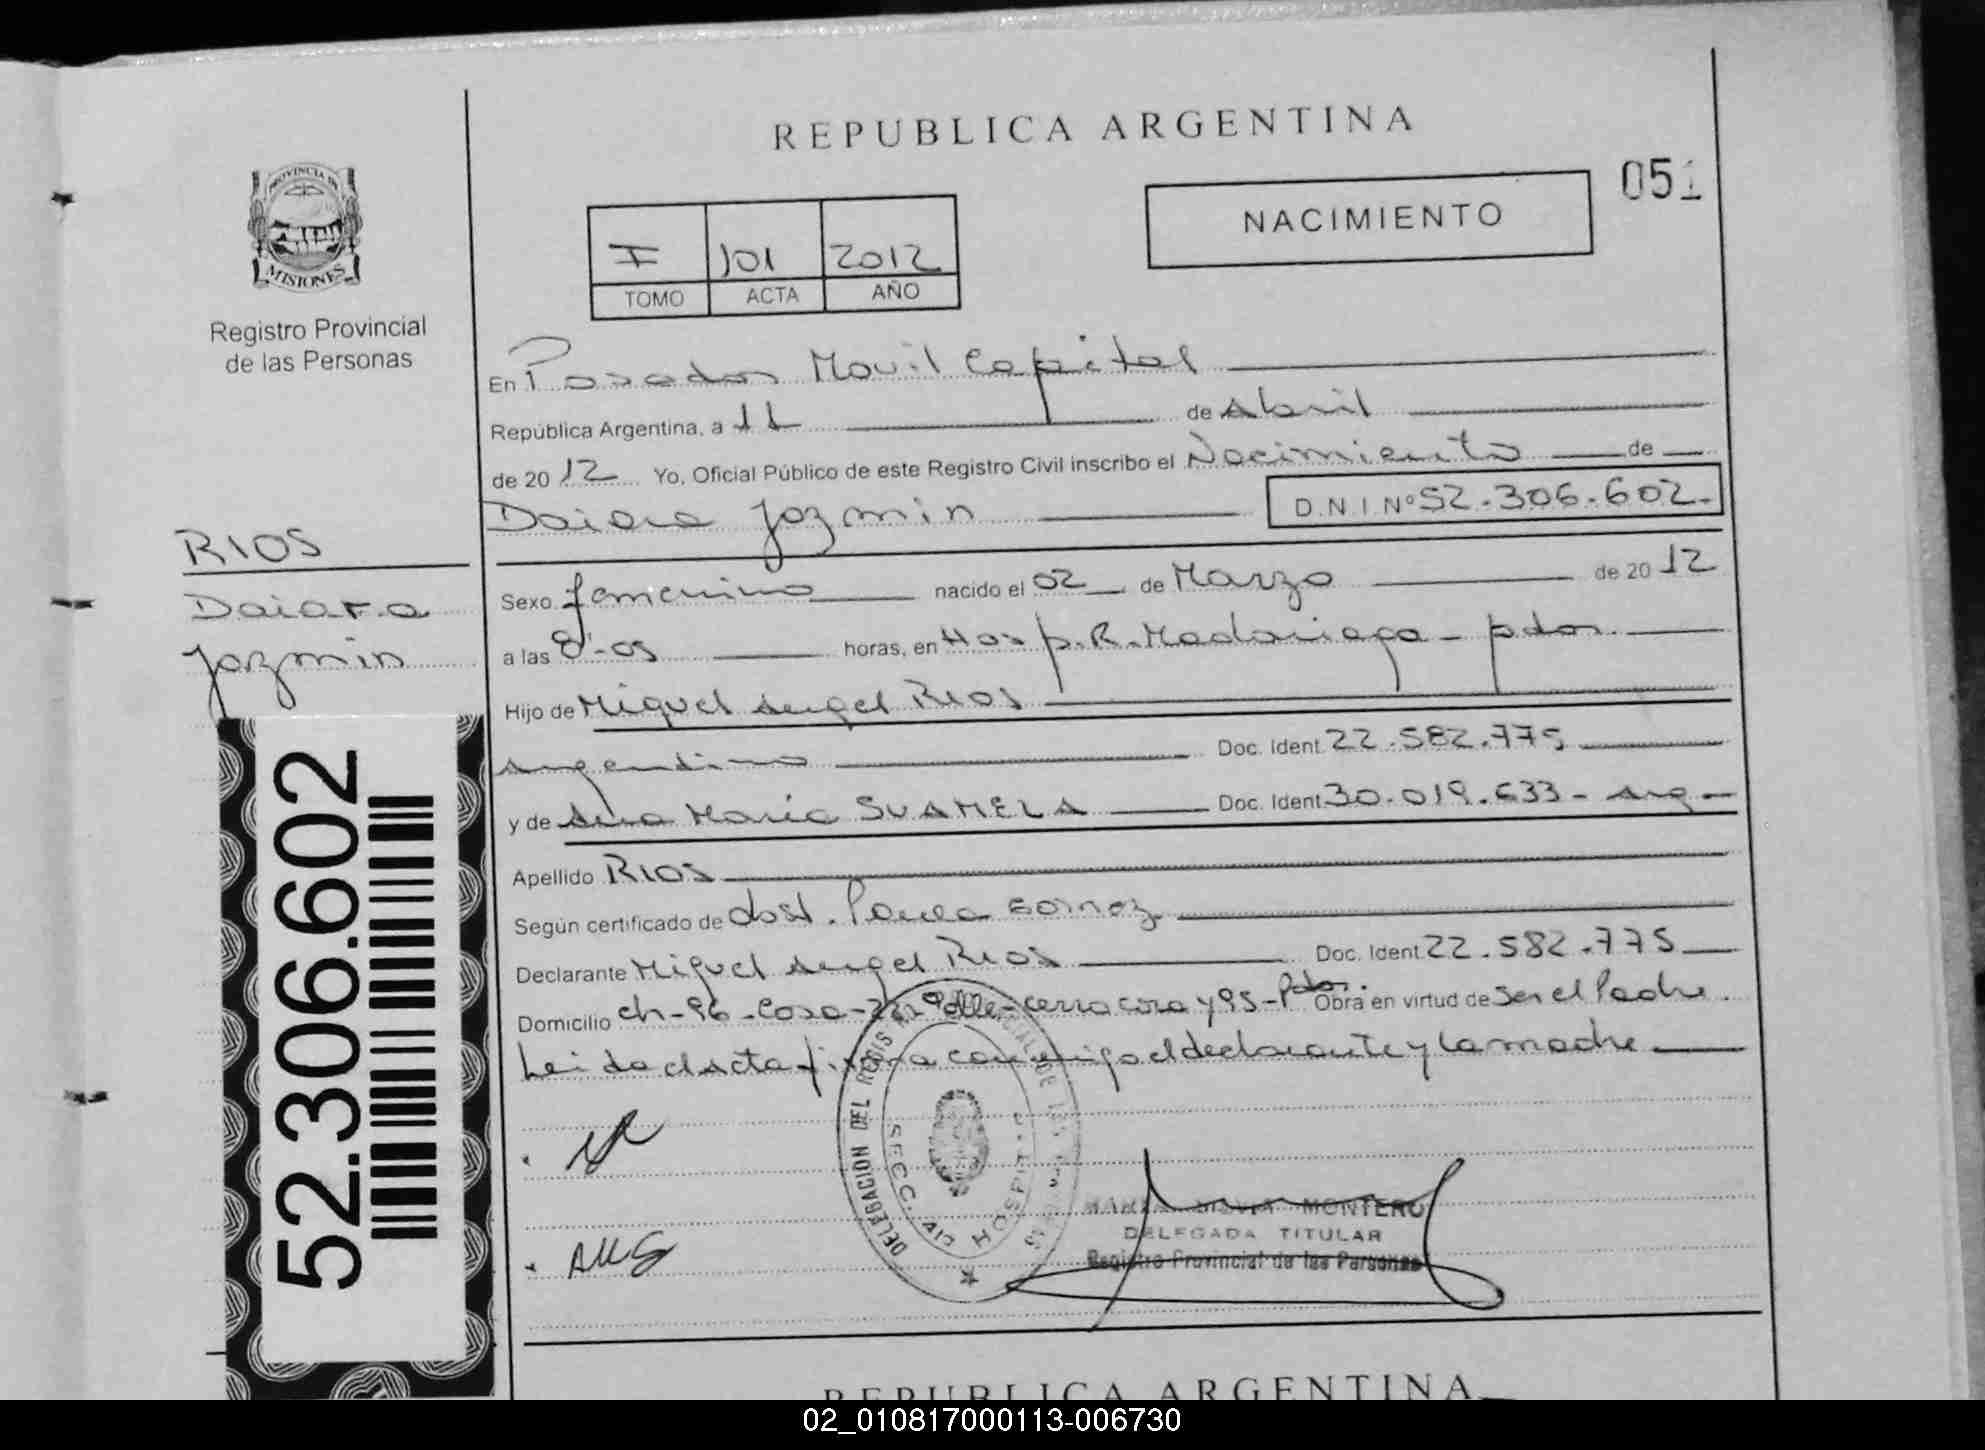 REPUBLICA ARGENTINA
051
NACIMIENTO
I 101 2012
TOMO ACTA AÑO
PROVINCIA DE
MISIONES
Registro Provincial
de las Personas
En Posadas Movil Capital
República Argentina, a 11 de Abril
de 2012 Yo, Oficial Público de este Registro Civil inscribo el Nacimiento de
Daiara Jazmin D.N.I.Nº 52.306.602.
RIOS
Daiara
Jazmin
Sexo femenino nacido el 02 de Marzo de 2012
a las 8:05 horas, en Hosp. R. Madariaga - pdas.
Hijo de Miguel Angel Rios
argentino Doc. Ident. 22.582.775
y de Ana María SUAMELA Doc. Ident. 30.019.633 - Arg -
Apellido RIOS
Según certificado de obst. Paula Gomez
Declarante Miguel Angel Rios Doc. Ident. 22.582.775
Domicilio ch-96-Casa- cerro cora y 95-Pdas. Obra en virtud de ser el Padre.
Leida el Acta firma conmigo el declarante y la madre
52.306.602
DELEGACION DEL REGIS
SECC.
HOSPIT
AMS
MONTERO
DELEGADA TITULAR
Registro Provincial de las Personas
REPUBLICA ARGENTINA
02_010817000113-006730